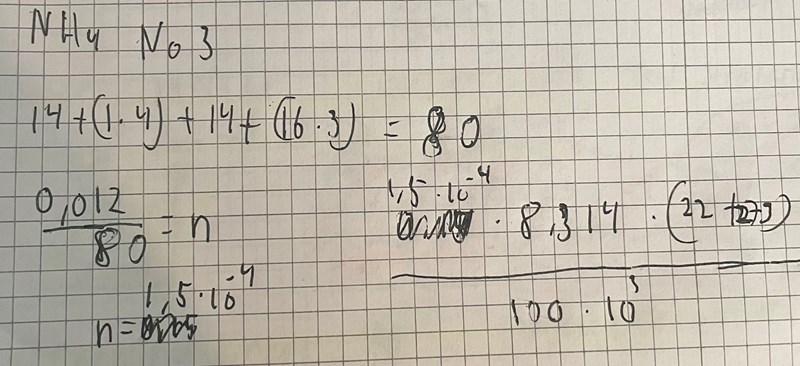 NH4 No3
14+(1·4)+14+(16·3) = 80
0,012 / 80 = n
n = 1,5·10^-4
1,5·10^-4 · 8,314 · (22+273) / 100·10^3